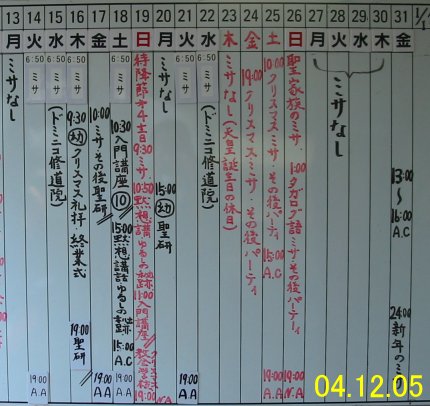 13 月 ミサなし
14 火 6:50 ミサ
15 水 6:50 ミサ (ドミニコ修道院)
16 木 6:50 ミサ 9:30 幼 クリスマス礼拝 終業式 19:00 聖研
17 金 10:00 ミサその後聖研 19:00 A A
18 土 6:50 ミサ 10:30 入門講座 ⑩ 15:00 黙想講話 ゆるしの秘跡 15:00 A.C
19 日 待降節第4主日 9:30 ミサ 10:50 黙想講話 ゆるしの秘跡 11:00 入門講座 N.A
20 月 ミサなし 15:00 幼 聖研
21 火 6:50 ミサ 19:00 A A
22 水 6:50 ミサ (ドミニコ修道院)
23 木 ミサなし (天皇誕生日の休日)
24 金 19:00 クリスマスミサ・その後パーティ
25 土 10:00 クリスマスミサ・その後パーティ 15:00 A.C
26 日 聖家族のミサ 1:00 タガログ語ミサその後パーティー 19:00 N.A
27 月
28 火 ミサなし
29 水
30 木
31 金 13:00 〜 16:00 A.C 24:00 新年のミサ
1/1
04.12.05